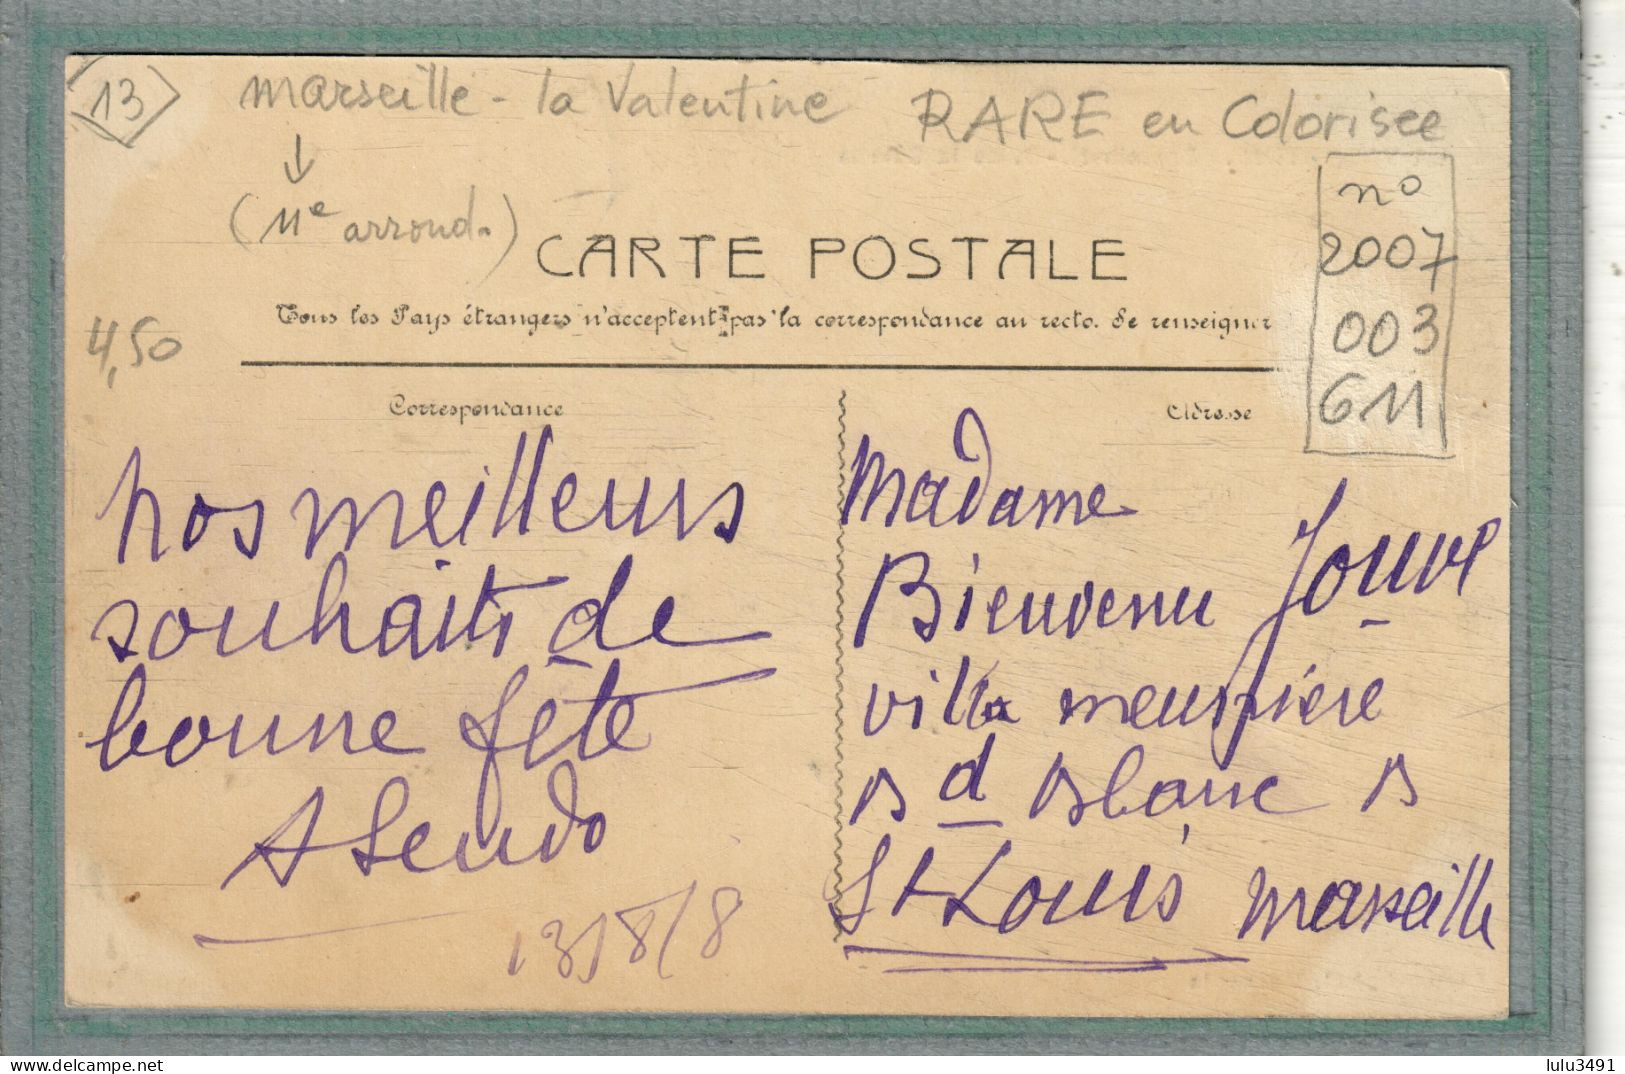 13
Marseille - la Valentine
RARE en Colorisee
(11e arrond.)
n°
2007
003
611
CARTE POSTALE
Tous les Pays étrangers n'acceptent pas la correspondance au recto. Se renseigner
4,50
Correspondance
Adresse
nos meilleurs
souhaits de
bonne fête
13/8/8
Madame
Bienvenu Jouve
villa
Bd Blanc B
St Louis Marseille
lulu3491